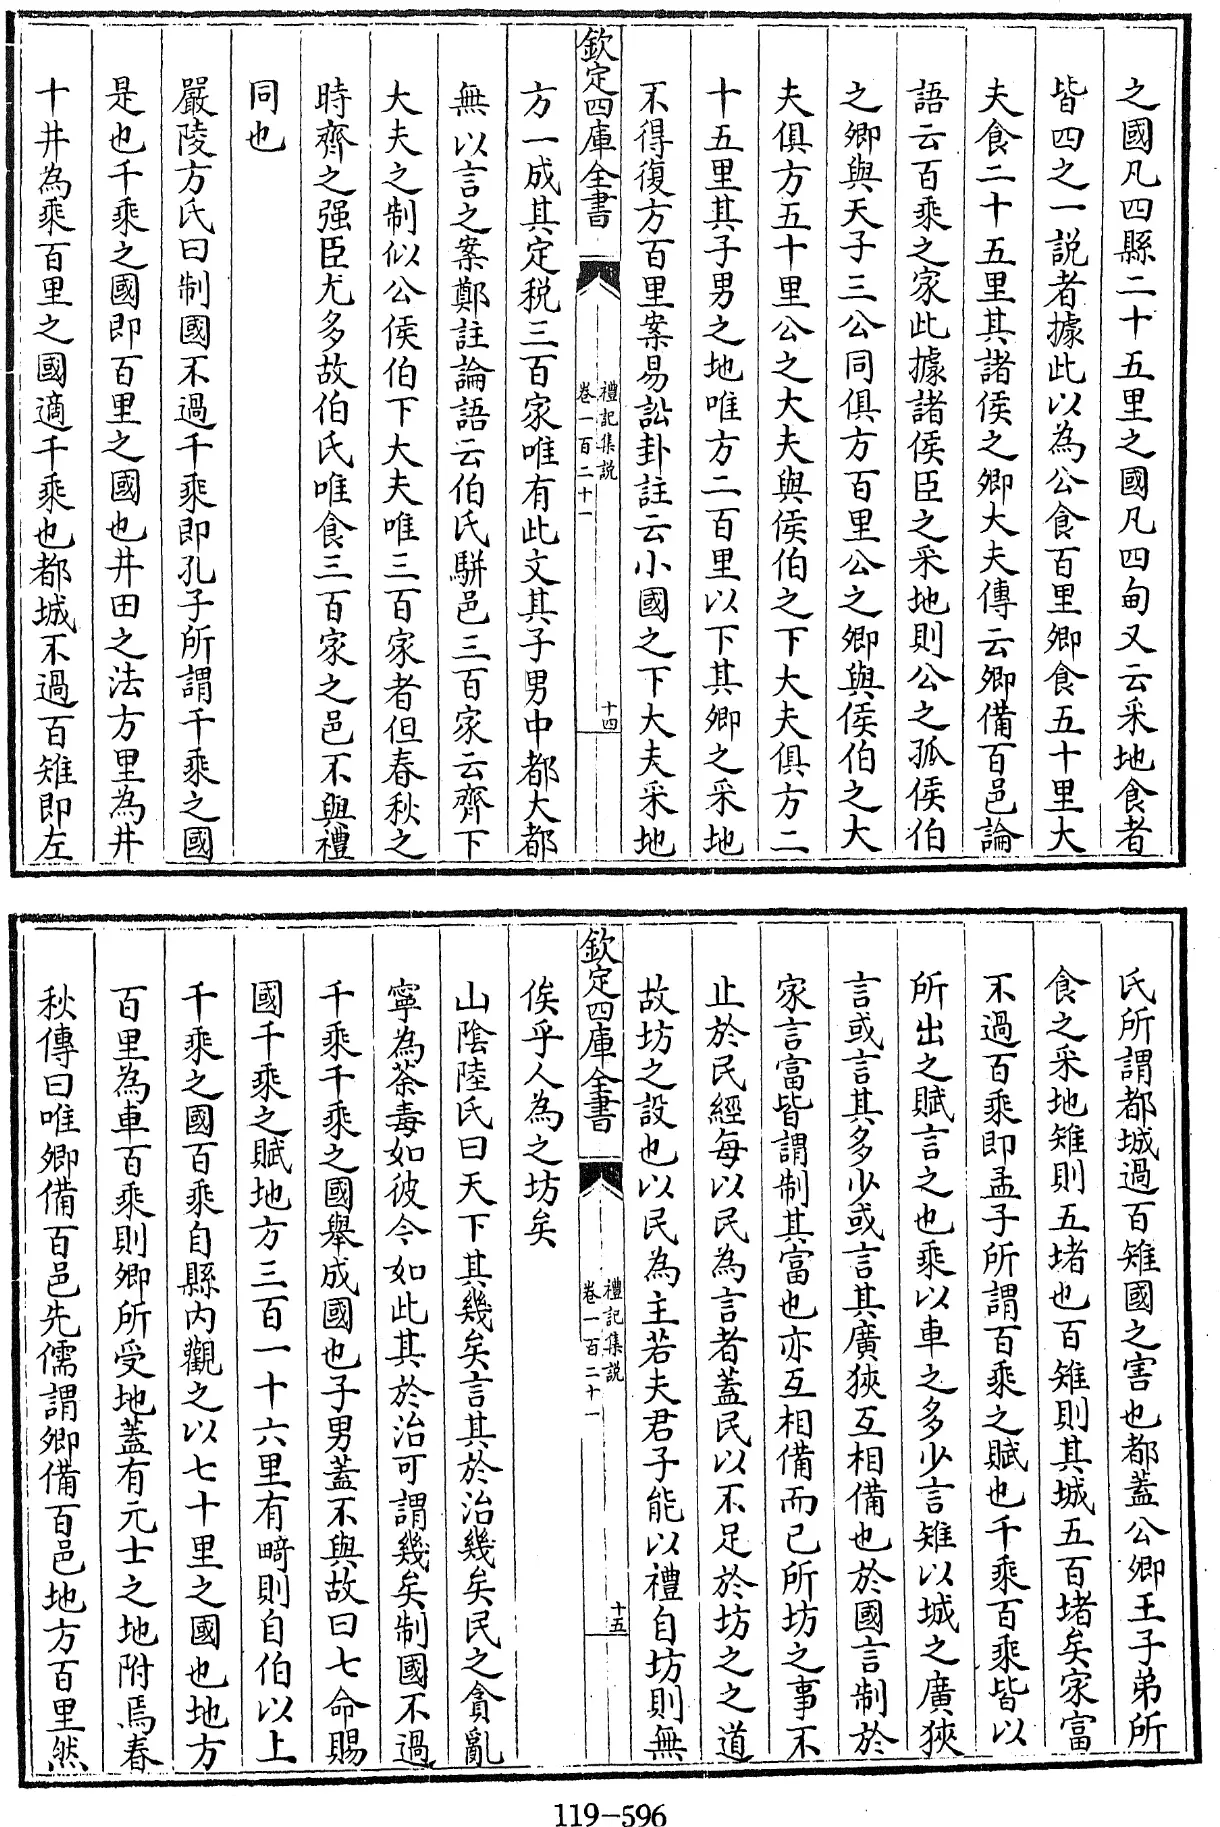 之國凡四縣二十五里之國凡四甸又云采地食者
皆四之一説者據此以為公食百里卿食五十里大
夫食二十五里其諸侯之卿大夫傳云卿備百邑論
語云百乘之家此據諸侯臣之采地則公之孤侯伯
之卿與天子三公同俱方百里公之卿與侯伯之大
夫俱方五十里公之大夫與侯伯之下大夫俱方二
十五里其子男之地唯方二百里以下其卿之采地
不得復方百里案易訟卦註云小國之下大夫采地
欽定四庫全書
禮記集説
卷一百二十一
十四
方一成其定税三百家唯有此文其子男中都大都
無以言之案鄭註論語云伯氏駢邑三百家云齊下
大夫之制似公侯伯下大夫唯三百家者但春秋之
時齊之强臣尤多故伯氏唯食三百家之邑不與禮
同也
嚴陵方氏曰制國不過千乘即孔子所謂千乘之國
是也千乘之國即百里之國也井田之法方里為井
十井為乘百里之國適千乘也都城不過百雉即左
氏所謂都城過百雉國之害也都蓋公卿王子弟所
食之采地雉則五堵也百雉則其城五百堵矣家富
不過百乘即孟子所謂百乘之賦也千乘百乘皆以
所出之賦言之也乘以車之多少言雉以城之廣狹
言或言其多少或言其廣狹互相備也於國言制於
家言富皆謂制其富也亦互相備而已所坊之事不
止於民經每以民為言者蓋民以不足於坊之之道
故坊之設也以民為主若夫君子能以禮自坊則無
欽定四庫全書
禮記集説
卷一百二十一
十五
俟乎人為之坊矣
山陰陸氏曰天下其幾矣言其於治幾矣民之貪亂
寧為荼毒如彼今如此其於治可謂幾矣制國不過
千乘千乘之國舉成國也子男蓋不與故曰七命賜
國千乘之賦地方三百一十六里有畸則自伯以上
千乘之國百乘自縣内觀之以七十里之國也地方
百里為車百乘則卿所受地蓋有元士之地附焉春
秋傳曰唯卿備百邑先儒謂卿備百邑地方百里然
119-596